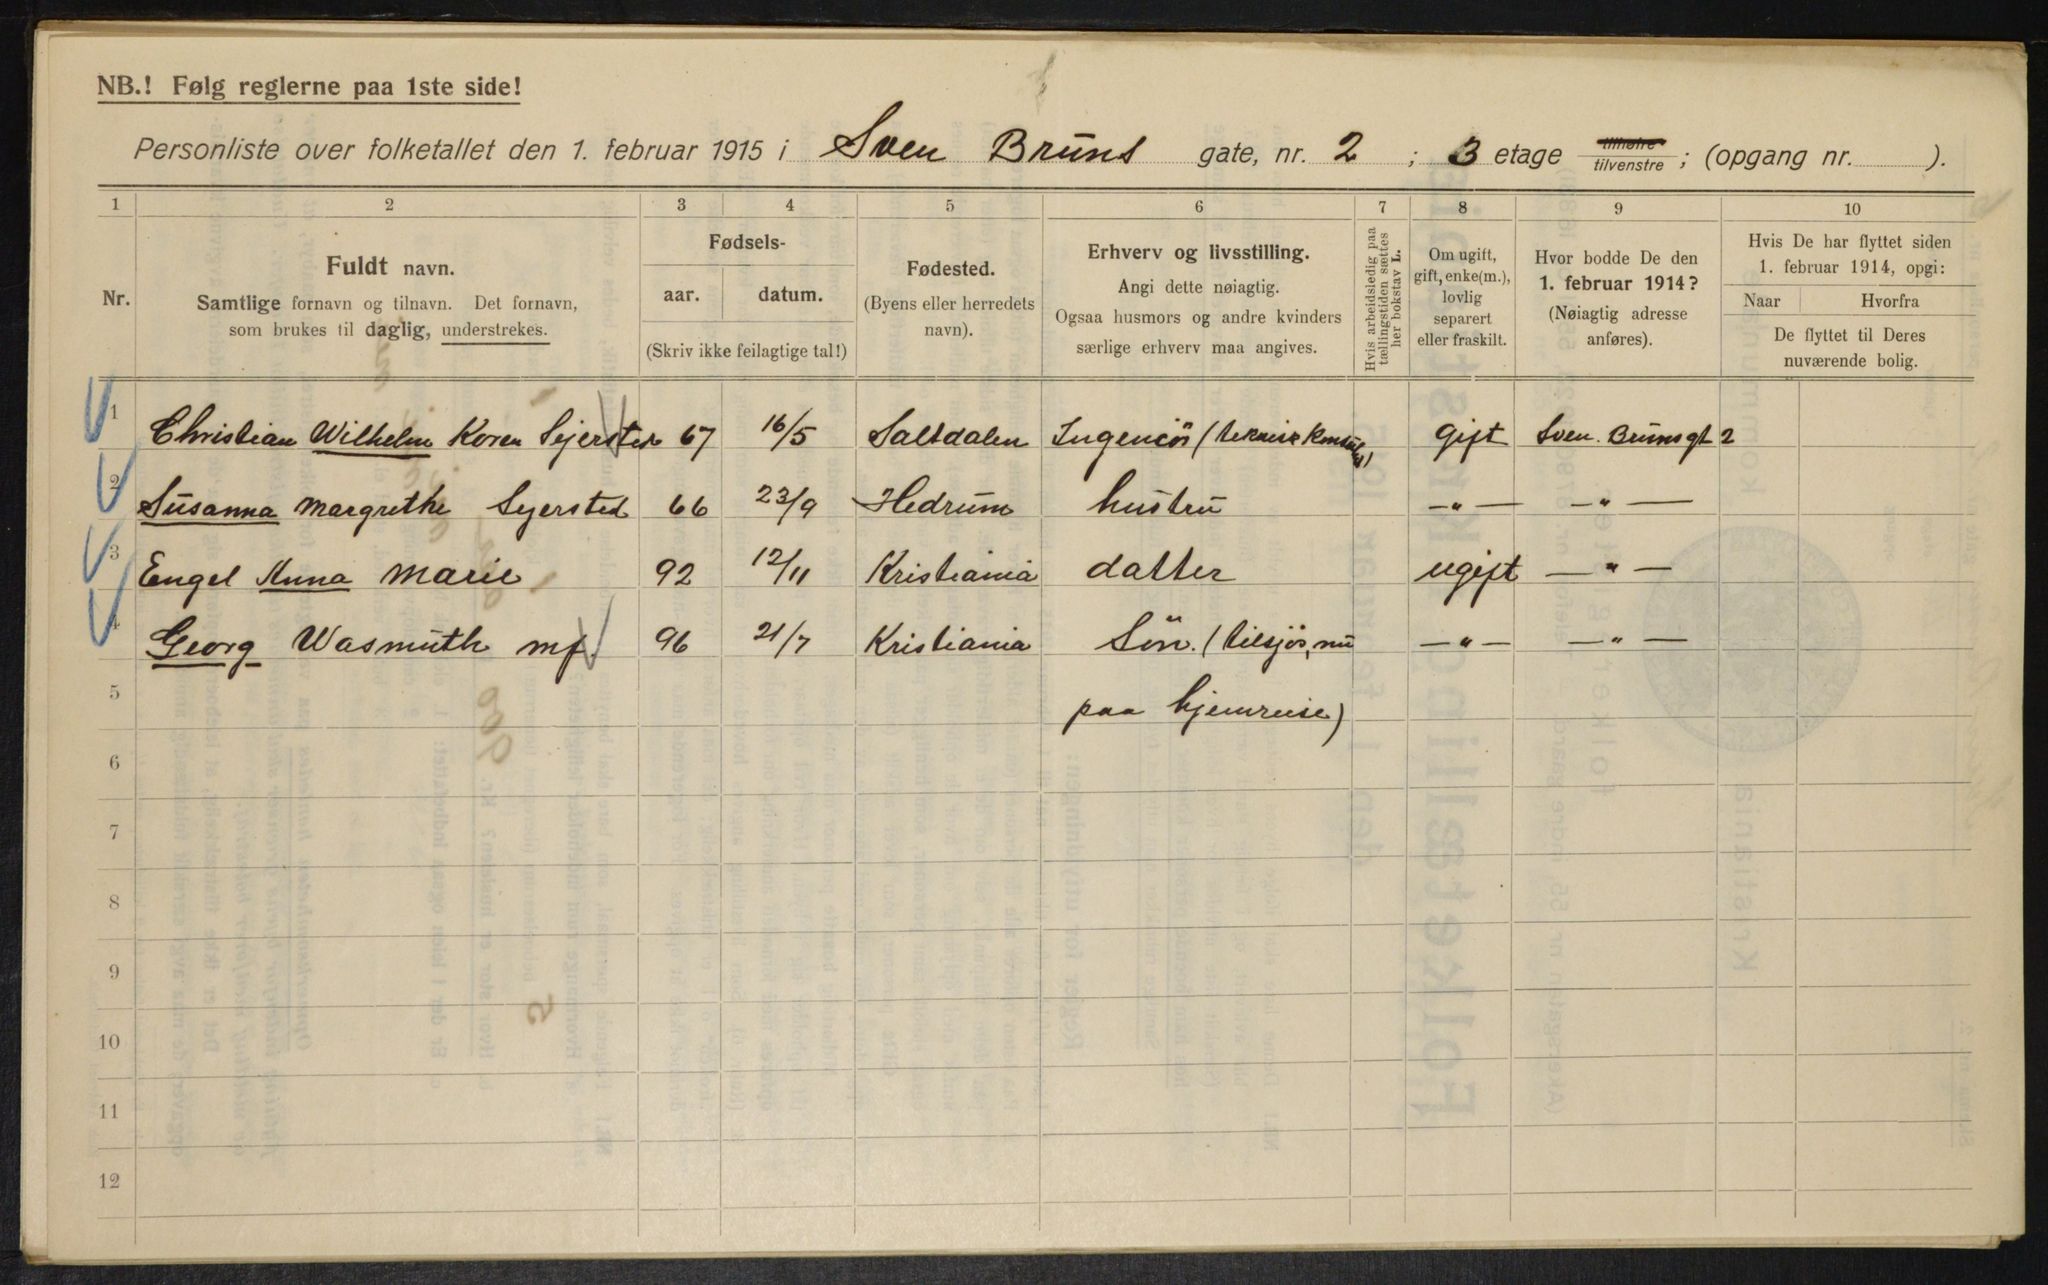 NB.! Følg reglerne paa 1ste side!
Personliste over folketallet den 1. februar 1915 i Sven Bruns gate, nr. 2 ; 3 etage tilhøire tilvenstre ; (opgang nr. ).
1 2 3 4 5 6 7 8 9 10
Nr.
Fuldt navn.
Samtlige fornavn og tilnavn. Det fornavn,
som brukes til daglig, understrekes.
Fødsels-
aar. datum.
(Skriv ikke feilagtige tal!)
Fødested.
(Byens eller herredets
navn).
Erhverv og livsstilling.
Angi dette nøiagtig.
Ogsaa husmors og andre kvinders
særlige erhverv maa angives.
Hvis arbeidsledig paa
tællingstiden sættes
her bokstav L.
Om ugift,
gift, enke(m.),
lovlig
separert
eller fraskilt.
Hvor bodde De den
1. februar 1914?
(Nøiagtig adresse
anføres).
Hvis De har flyttet siden
1. februar 1914, opgi:
Naar Hvorfra
De flyttet til Deres
nuværende bolig.
1 Christian Wilhelm Koren Sejersted 67 16/5 Saltdalen Ingeniör (teknisk konsulent) gift Sven. Brunsgt 2
2 Susanna Margrethe Sejersted 66 23/9 Hedrum hustru —„— —„—
3 Engel Anna Marie 92 12/11 Kristiania datter ugift —„—
4 Georg Wasmuth 96 21/7 Kristiania Sön. (tilsjös, nu —„— —„—
5 paa hjemreise)
6
7
8
9
10
11
12